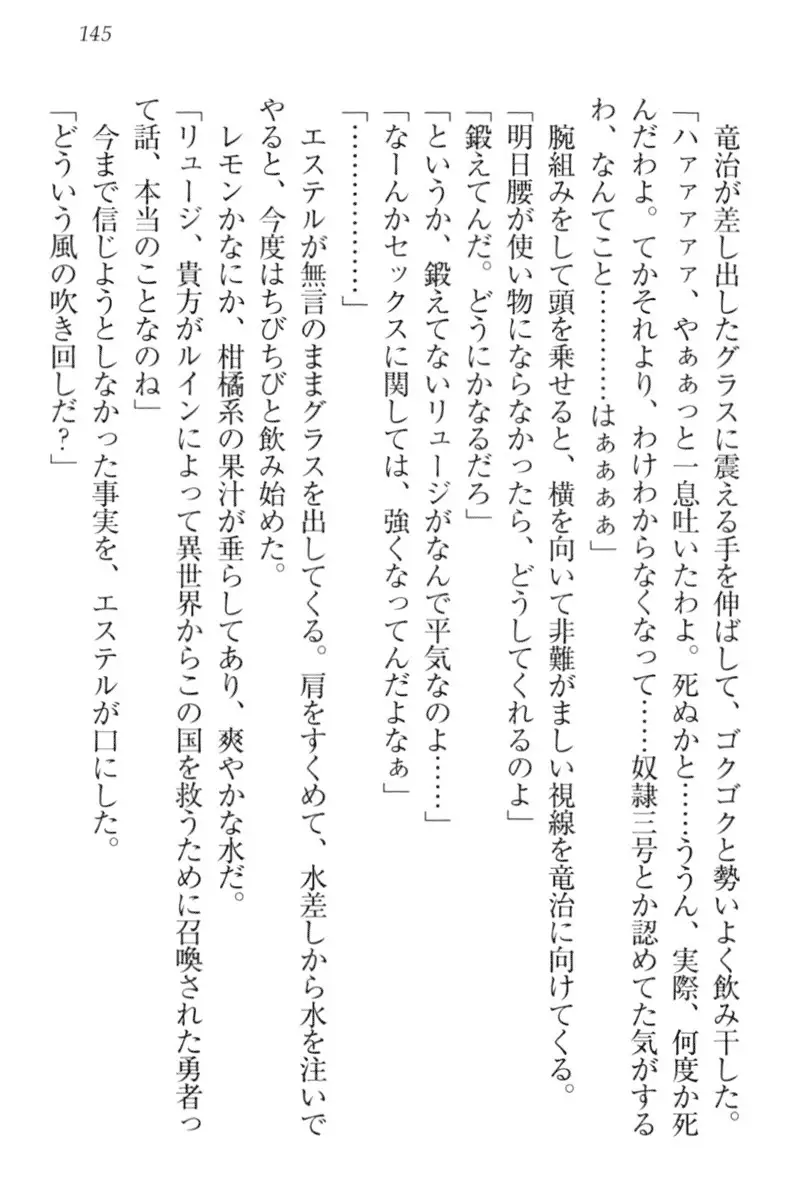 145
竜治が差し出したグラスに震える手を伸ばして、ゴクゴクと勢いよく飲み干した。
「ハァァァァァ、やぁぁっと一息吐いたわよ。死ぬかと……ううん、実際、何度か死
んだわよ。てかそれより、わけわからなくなって……奴隷三号とか認めてた気がする
わ、なんてこと…………はぁぁぁぁ」
腕組みをして頭を乗せると、横を向いて非難がましい視線を竜治に向けてくる。
「明日腰が使い物にならなかったら、どうしてくれるのよ」
「鍛えてんだ。どうにかなるだろ」
「というか、鍛えてないリュージがなんで平気なのよ……」
「なーんかセックスに関しては、強くなってんだよなぁ」
「………………」
エステルが無言のままグラスを出してくる。肩をすくめて、水差しから水を注いで
やると、今度はちびちびと飲み始めた。
レモンかなにか、柑橘系の果汁が垂らしてあり、爽やかな水だ。
「リュージ、貴方がルインによって異世界からこの国を救うために召喚された勇者っ
て話、本当のことなのね」
今まで信じようとしなかった事実を、エステルが口にした。
「どういう風の吹き回しだ？」